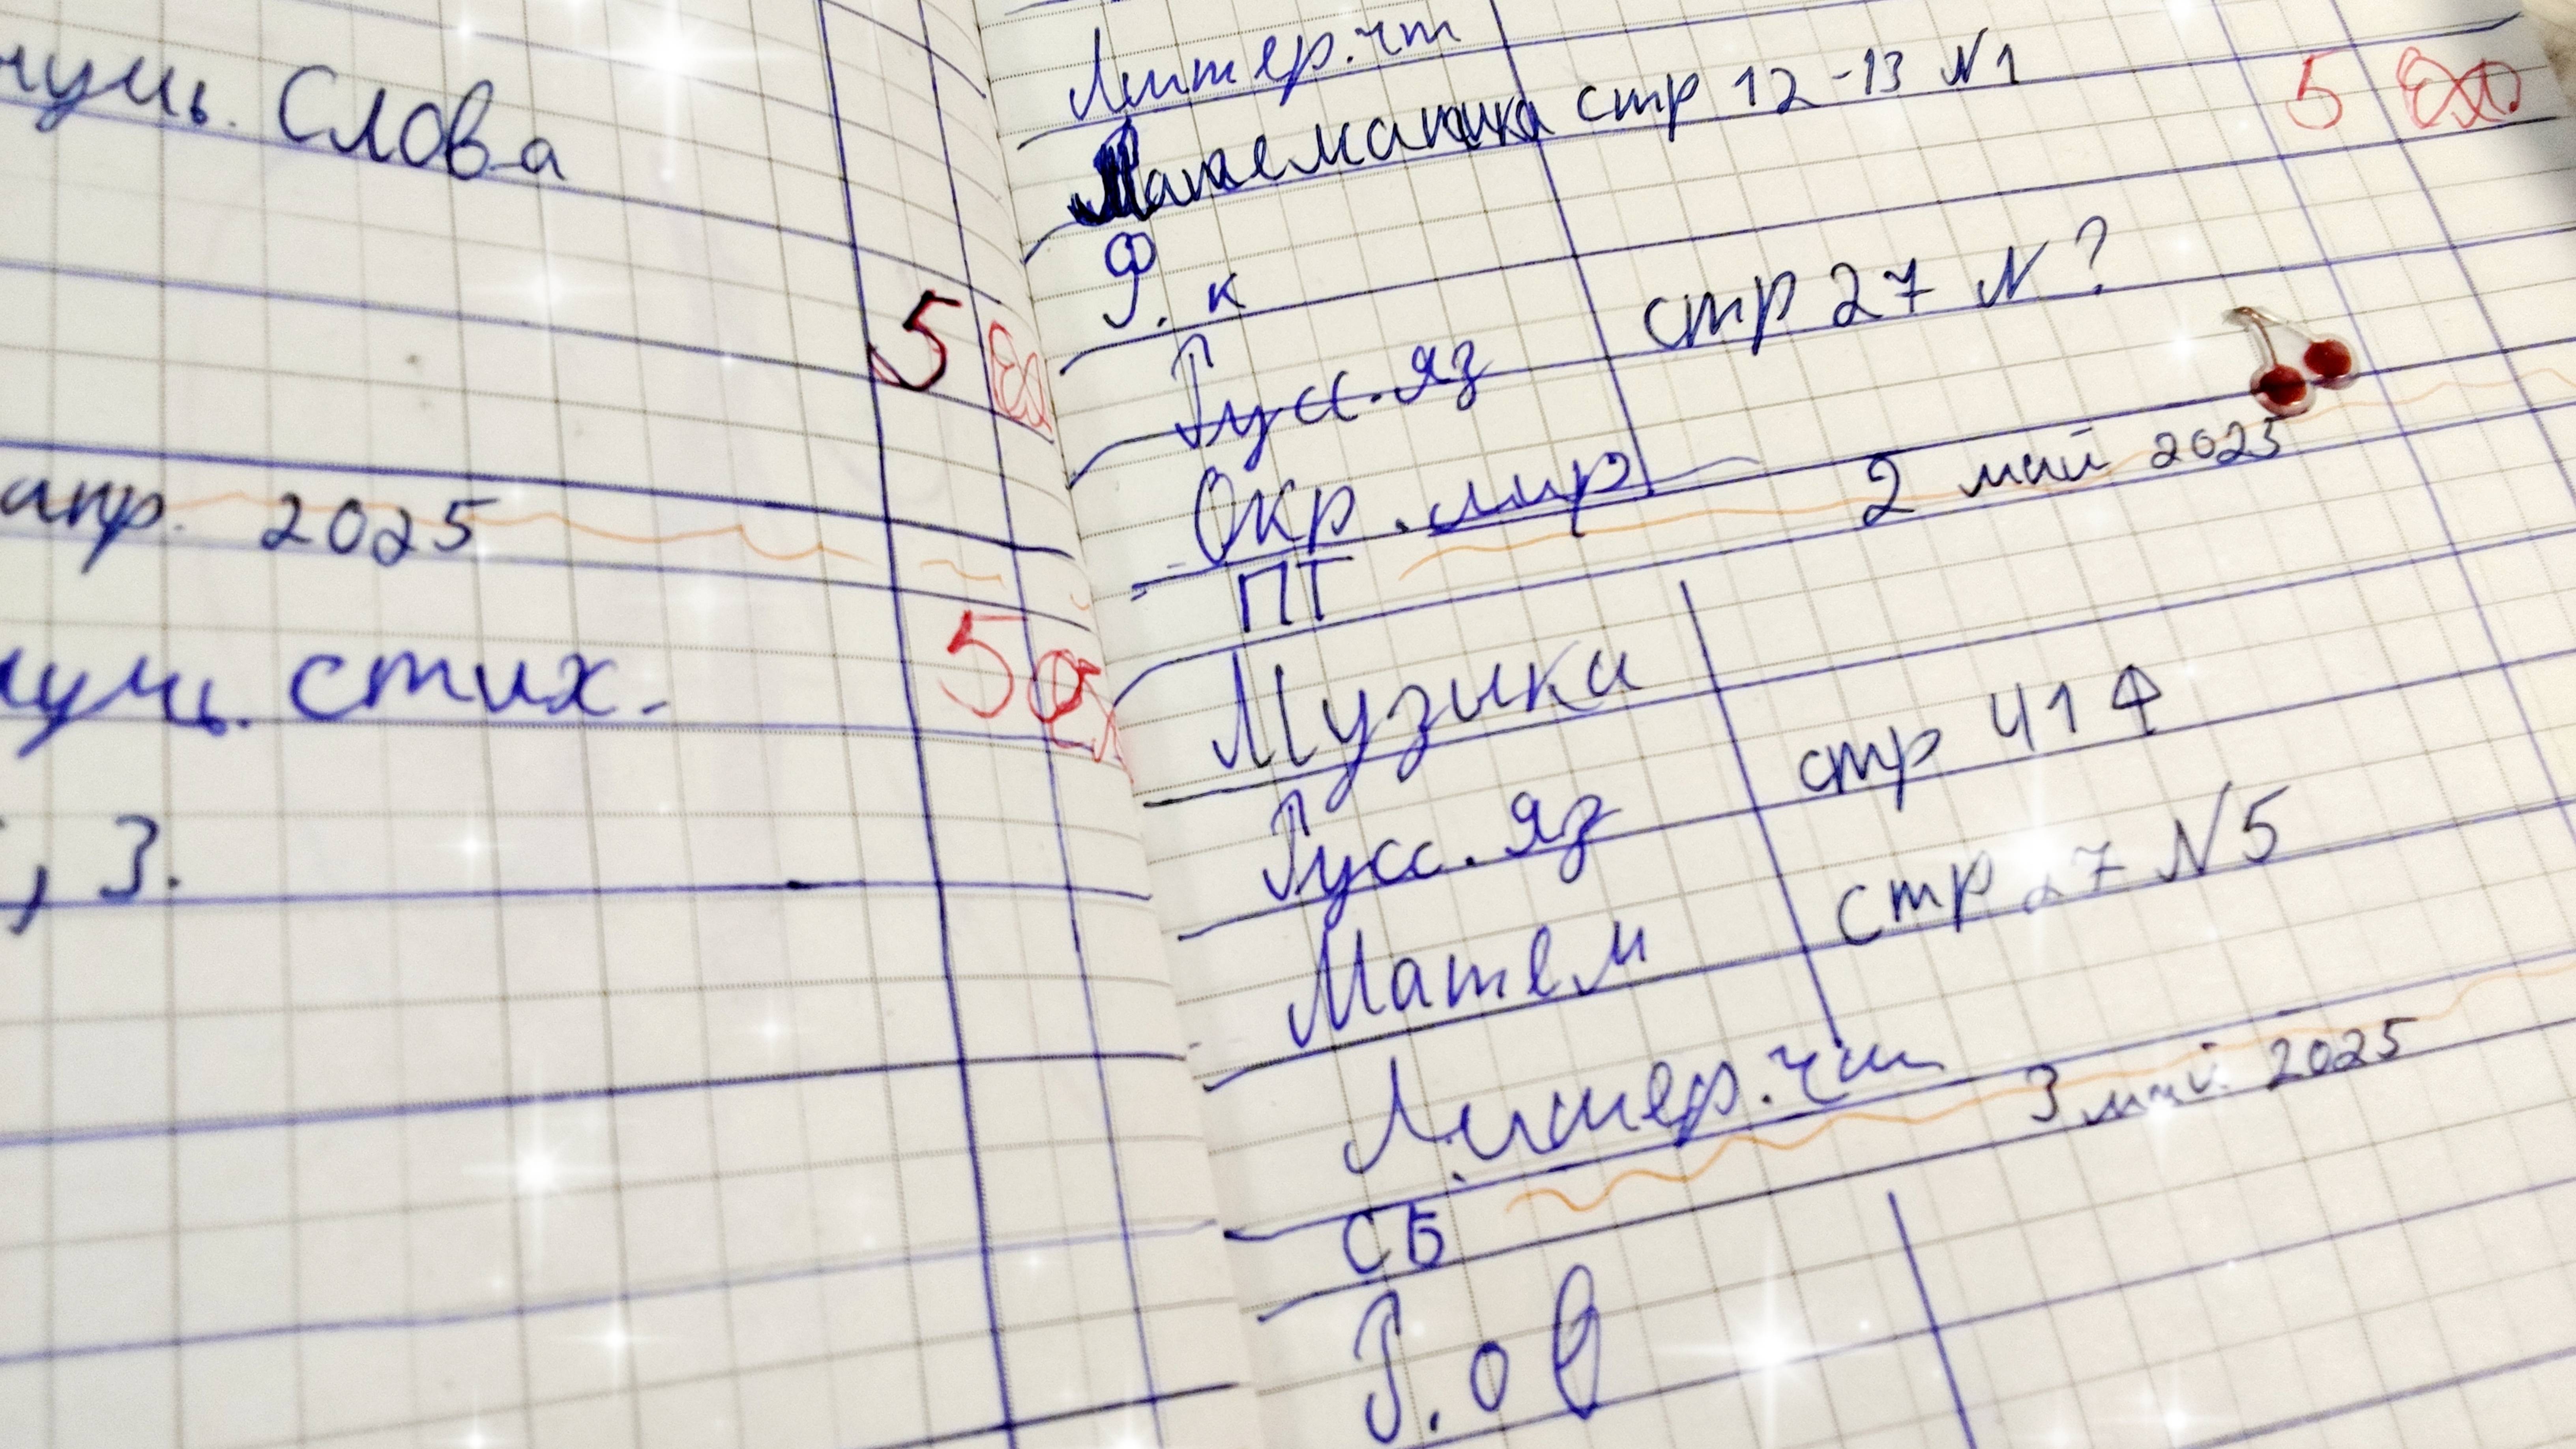 Слова
5
апр. 2025
стих.
5
, 3.
Литер.чт
Математика стр 12-13 N1
5
Ф.к
Русс.яз стр 27 N?
Окр.мир
ПТ 2 май 2025
Музыка
Русс.яз стр 41
Матем стр 27 N5
Литер.чт
СБ 3 май 2025
Р.о В